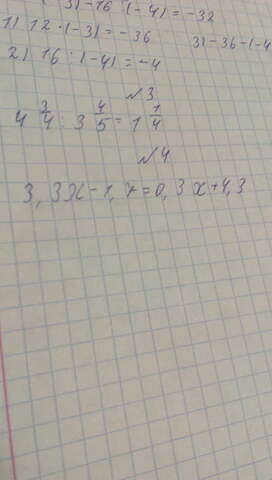 3)-16 (-4) = -32
1) 12 · (-3) = -36 3) -36-(-4
2) 16 · (-4) = -4
№3
4 3/4 : 3 4/5 = 1 1/4
№4
3,3x-1,7=0,3x+4,3